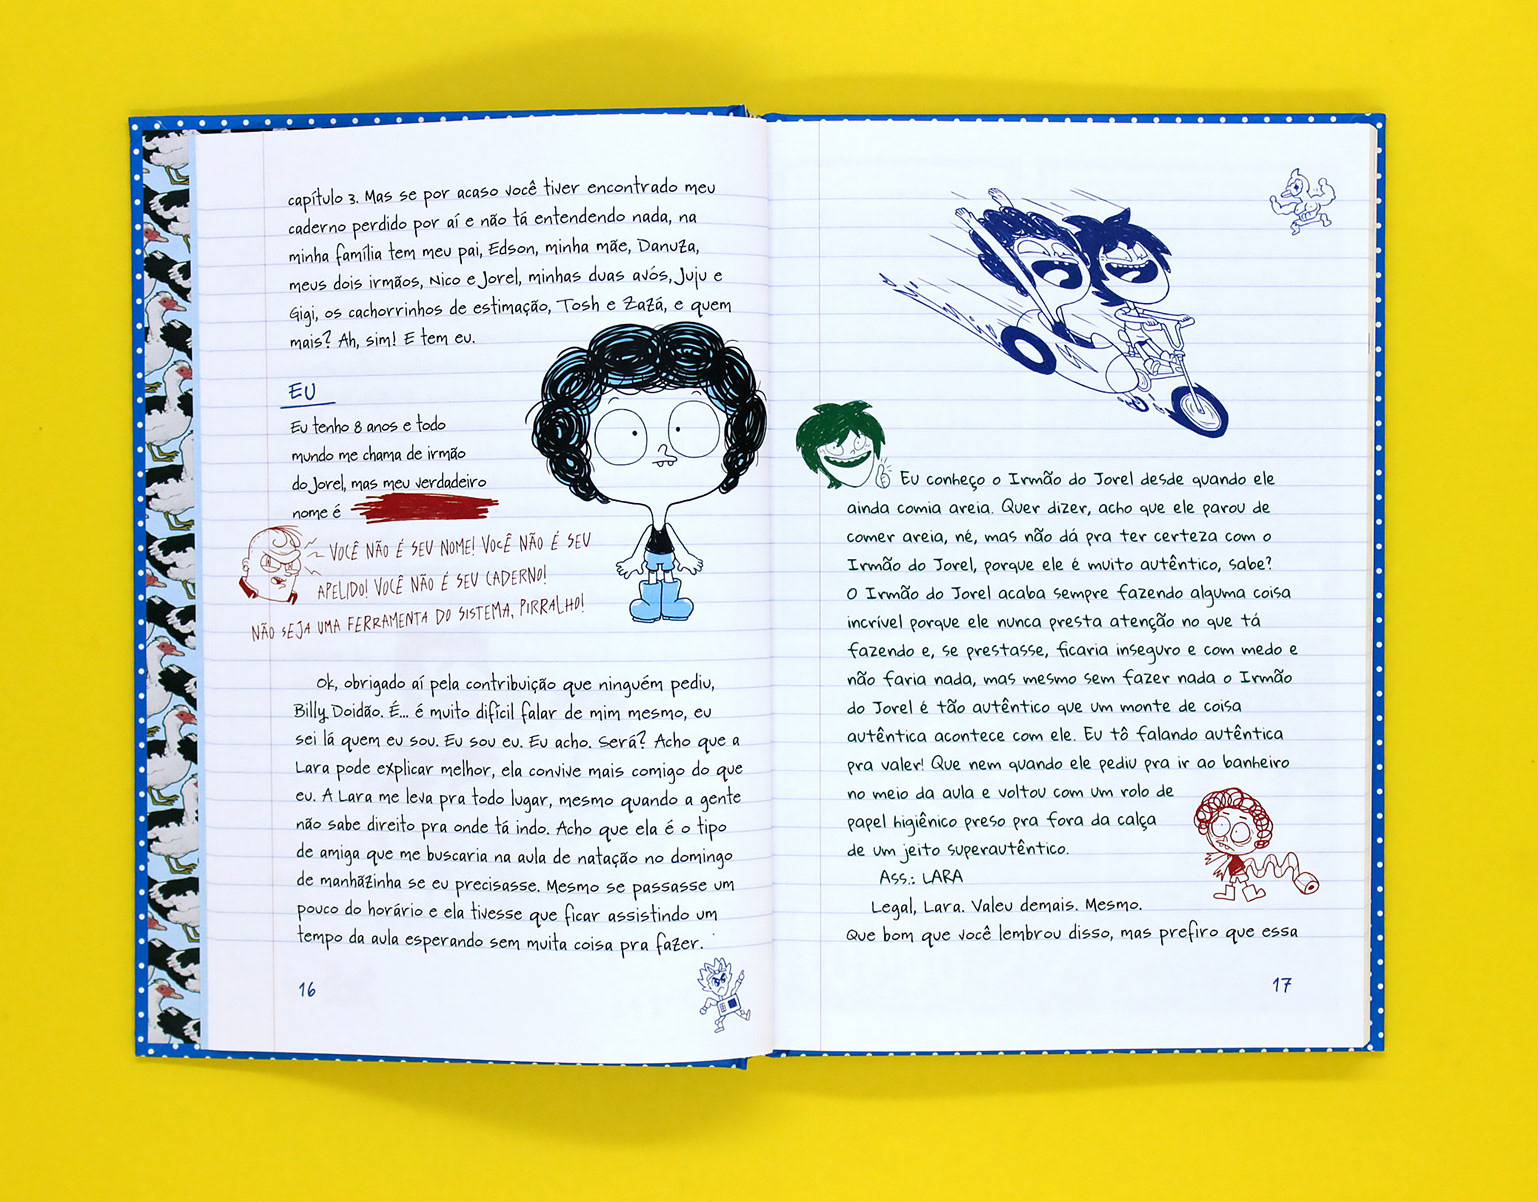 capítulo 3. Mas se por acaso você tiver encontrado meu
caderno perdido por aí e não tá entendendo nada, na
minha família tem meu pai, Edson, minha mãe, Danuza,
meus dois irmãos, Nico e Jorel, minhas duas avós, Juju e
Gigi, os cachorrinhos de estimação, Tosh e Zazá, e quem
mais? Ah, sim! E tem eu.
EU
Eu tenho 8 anos e todo
mundo me chama de irmão
do Jorel, mas meu verdadeiro
nome é
VOCÊ NÃO É SEU NOME! VOCÊ NÃO É SEU
APELIDO! VOCÊ NÃO É SEU CADERNO!
NÃO SEJA UMA FERRAMENTA DO SISTEMA, PIRRALHO!
Ok, obrigado aí pela contribuição que ninguém pediu,
Billy Doidão. É... é muito difícil falar de mim mesmo, eu
sei lá quem eu sou. Eu sou eu. Eu acho. Será? Acho que a
Lara pode explicar melhor, ela convive mais comigo do que
eu. A Lara me leva pra todo lugar, mesmo quando a gente
não sabe direito pra onde tá indo. Acho que ela é o tipo
de amiga que me buscaria na aula de natação no domingo
de manhãzinha se eu precisasse. Mesmo se passasse um
pouco do horário e ela tivesse que ficar assistindo um
tempo da aula esperando sem muita coisa pra fazer.
16
Eu conheço o Irmão do Jorel desde quando ele
ainda comia areia. Quer dizer, acho que ele parou de
comer areia, né, mas não dá pra ter certeza com o
Irmão do Jorel, porque ele é muito autêntico, sabe?
O Irmão do Jorel acaba sempre fazendo alguma coisa
incrível porque ele nunca presta atenção no que tá
fazendo e, se prestasse, ficaria inseguro e com medo e
não faria nada, mas mesmo sem fazer nada o Irmão
do Jorel é tão autêntico que um monte de coisa
autêntica acontece com ele. Eu tô falando autêntica
pra valer! Que nem quando ele pediu pra ir ao banheiro
no meio da aula e voltou com um rolo de
papel higiênico preso pra fora da calça
de um jeito superautêntico.
Ass.: LARA
Legal, Lara. Valeu demais. Mesmo.
Que bom que você lembrou disso, mas prefiro que essa
17